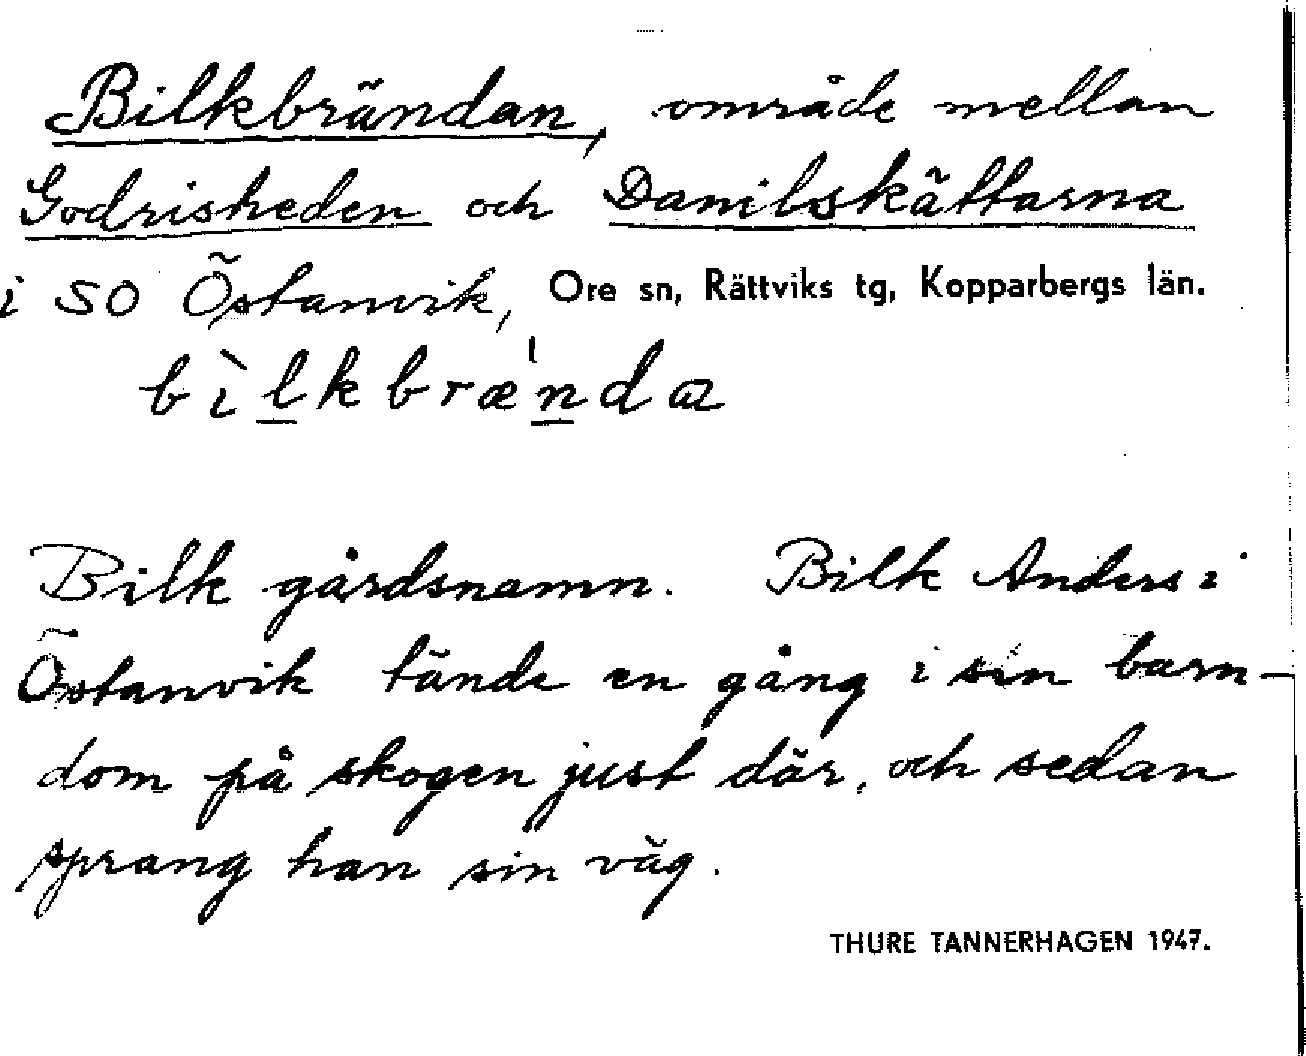 Bilkbrändan, område mellan
Godrisheden och Danilskättarna
i SO Östanvik, Ore sn, Rättviks tg, Kopparbergs län.
bìlkbræ̀nda
Bilk gårdsnamn. Bilk Anders i
Östanvik tände en gång i sin barn-
dom på skogen just där, och sedan
sprang han sin väg.
THURE TANNERHAGEN 1947.